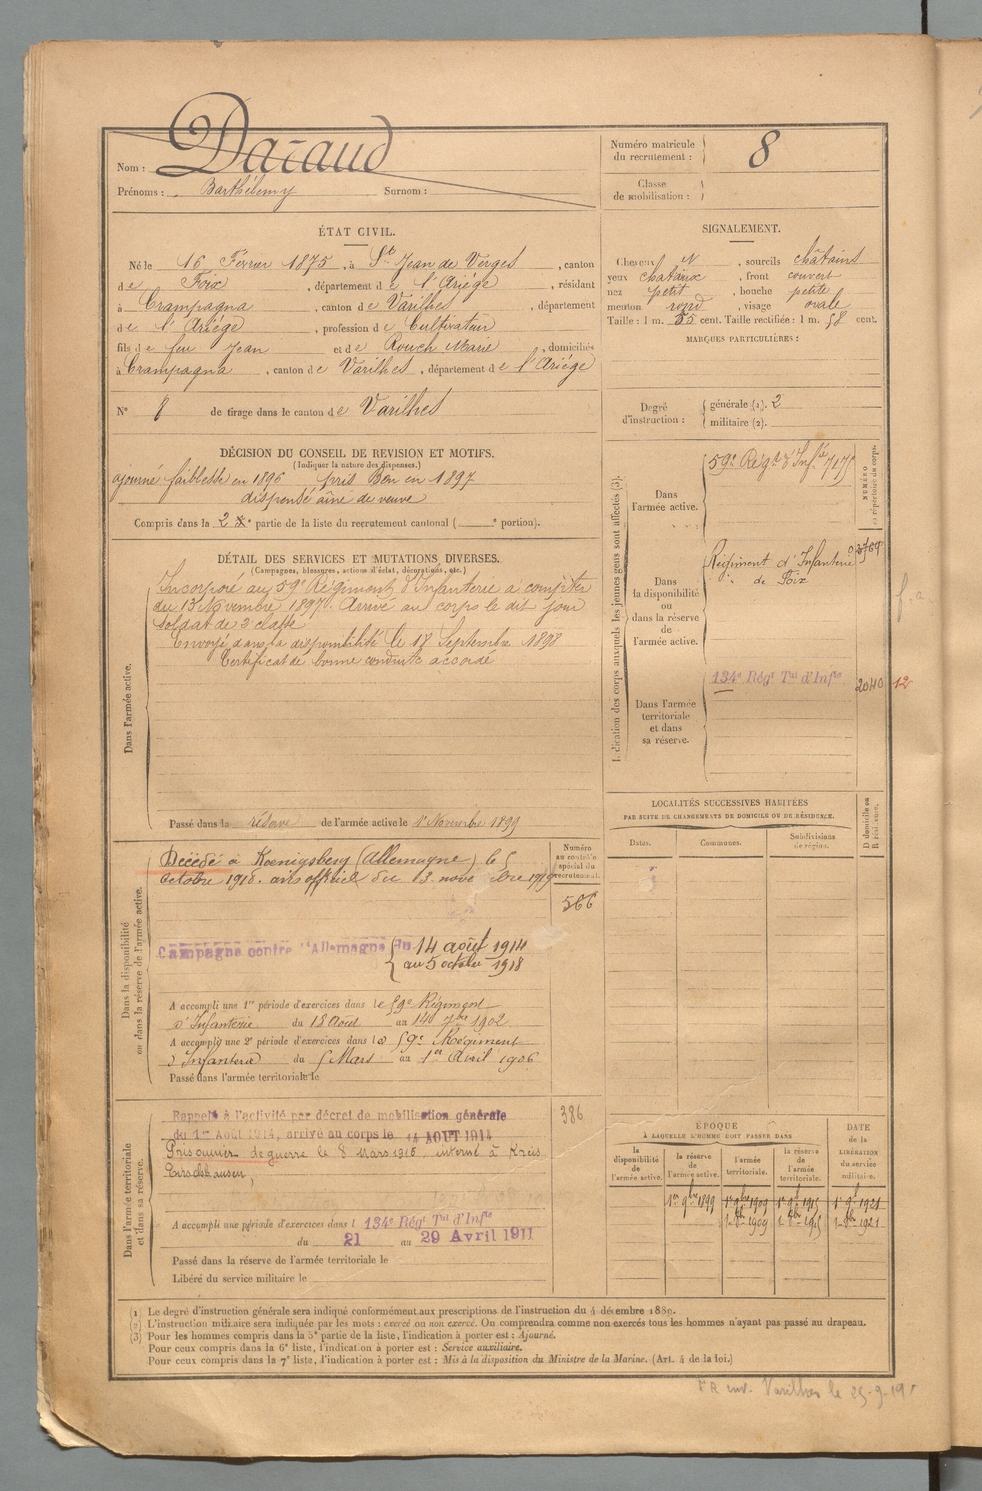 Nom : Daraud
Prénoms : Barthélemy Surnom :
Numéro matricule du recrutement : 8
Classe de mobilisation :
ÉTAT CIVIL.
Né le 16 Février 1875, à St Jean de Verges, canton
de Foix, département de l'Ariége, résidant
à Crampagna, canton de Varilhes, département
de l'Ariége, profession de Cultivateur
fils de feu Jean et de Rouch Marie, domiciliés
à Crampagna, canton de Varilhes, département de l'Ariége
N° 8 de tirage dans le canton de Varilhes
SIGNALEMENT.
Cheveux N, sourcils châtains
yeux chataux, front couvert
nez petit, bouche petite
menton rond, visage ovale
Taille : 1 m. 55 cent. Taille rectifiée : 1 m. 58 cent.
MARQUES PARTICULIÈRES :
Degré d'instruction : générale (1). 2
militaire (2).
DÉCISION DU CONSEIL DE REVISION ET MOTIFS.
(Indiquer la nature des dispenses.)
ajourné faiblesse en 1896 pris Bon en 1897
dispensé aîné de veuve
Compris dans la 2e partie de la liste du recrutement cantonal ( e portion).
DÉTAIL DES SERVICES ET MUTATIONS DIVERSES.
(Campagnes, blessures, actions d'éclat, décorations, etc.)
Dans l'armée active.
Incorporé au 59e Régiment d'Infanterie à compter
du 13 Novembre 1897. Arrivé au corps le dit jour
soldat de 2 classe
Envoyé dans la disponibilité le 18 Septembre 1898
Certificat de bonne conduite accordé
Passé dans la réserve de l'armée active le 1r Novembre 1899
Indication des corps auxquels les jeunes gens sont affectés (3).
NUMÉRO au répertoire du corps.
Dans l'armée active.
59e Régt d'Infie 7175
Dans la disponibilité ou dans la réserve de l'armée active.
Régiment d'Infanterie 03764
de Foix
Dans l'armée territoriale et dans sa réserve.
134e Régt Tal d'Infie 2040 12
LOCALITÉS SUCCESSIVES HABITÉES
PAR SUITE DE CHANGEMENTS DE DOMICILE OU DE RÉSIDENCE.
Dates. Communes. Subdivisions de région. D domicile ou R résidence.
Dans la disponibilité ou dans la réserve de l'armée active.
Numéro au contrôle spécial du recrutement.
566
Décédé à Koenigsberg (Allemagne) le 5
Octobre 1918. avis officiel du 13 novembre 1919
Campagne contre l'Allemagne du 14 août 1914
au 5 octobre 1918
A accompli une 1re période d'exercices dans le 59e Régiment
d'Infanterie du 18 Août au 14 7bre 1902
A accompli une 2e période d'exercices dans le 59e Régiment
d'Infanterie du 5 Mars au 1er Avril 1906
Passé dans l'armée territoriale le
Dans l'armée territoriale et dans sa réserve.
386
Rappelé à l'activité par décret de mobilisation générale
du 1er Août 1914, arrivé au corps le 14 AOUT 1914
Prisonnier de guerre le 8 Mars 1916, interné à Kreis
A accompli une période d'exercices dans l 134e Régt Tal d'Infie
du 21 au 29 Avril 1911
Passé dans la réserve de l'armée territoriale le
Libéré du service militaire le
ÉPOQUE
À LAQUELLE L'HOMME DOIT PASSER DANS
DATE de la LIBÉRATION du service militaire.
la disponibilité de l'armée active. la réserve de l'armée active. l'armée territoriale. la réserve de l'armée territoriale.
1er 9bre 1899 1r 9bre 1909 1r 9bre 1915 1r 9bre 1921
1r 8bre 1909 1r 8bre 1915 1r 8bre 1921
(1) Le degré d'instruction générale sera indiqué conformément aux prescriptions de l'instruction du 4 décembre 1889.
(2) L'instruction militaire sera indiquée par les mots : exercé ou non exercé. On comprendra comme non exercés tous les hommes n'ayant pas passé au drapeau.
(3) Pour les hommes compris dans la 5e partie de la liste, l'indication à porter est : Ajourné.
Pour ceux compris dans la 6e liste, l'indication à porter est : Service auxiliaire.
Pour ceux compris dans la 7e liste, l'indication à porter est : Mis à la disposition du Ministre de la Marine. (Art. 4 de la loi.)
Varilhes le 25-9-19